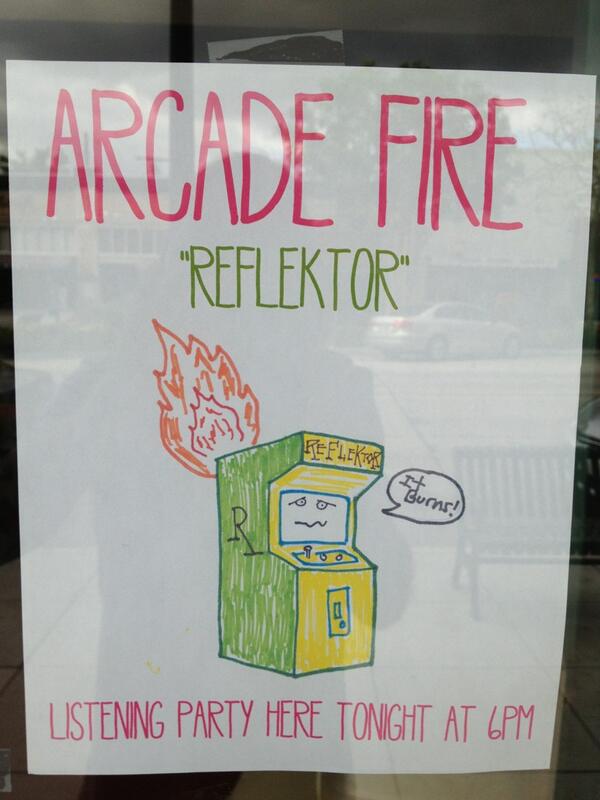 ARCADE FIRE
"REFLEKTOR"
REFLEKTOR
It
Burns!
R
LISTENING PARTY HERE TONIGHT AT 6PM